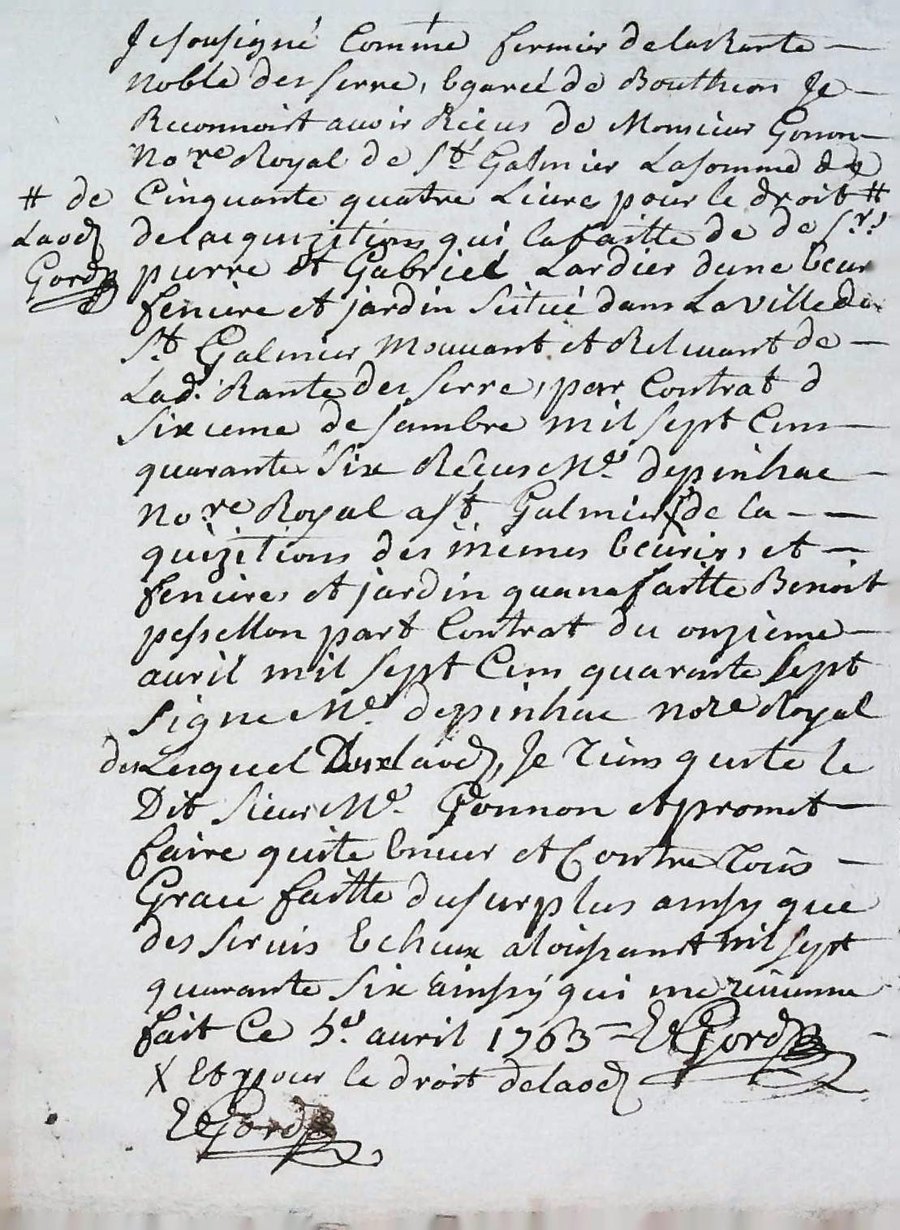 Je sousigné Comme fermier de la Rante
noble des serre, Egarée de Boutheon Je
Reconnoist avoir Reçus de Monsieur Gonon
No.re Royal de St Galmier La somme de
# de Cinquante quatre Livre pour le droit #
Laod delacquizitions qui la faitte de de Srs
Gord pierre et Gabriel Lardier dune beur
feniere et jardin scitué dans La ville de
St. Galmier Mouvant et Relevant de
Lad. Rante des serre, par Contrat d
sixieme desambre mil sept Cens
quarante six Reçus Me depinhac
No.re Royal a St Galmier X de la
quizitions des mêmes beuries et
fenieres et jardin quan a faitte Benoit
pessellon part Contrat du onzieme
avril mil sept Cens quarante sept
signe Me. depinhac no.re Royal
des Lesquel Deux laod, Je tiens quitte le
Dit sieur Me Gonnon et promet
faire quite Eneur et Contre Tous
Grace faitte du surplus ainsy que
des servis Echeux alois mil sept
quarante six ainssy qui me
fait Ce 5e. avril 1763 = E Gord
X Et pour le droit de laod
E Gord